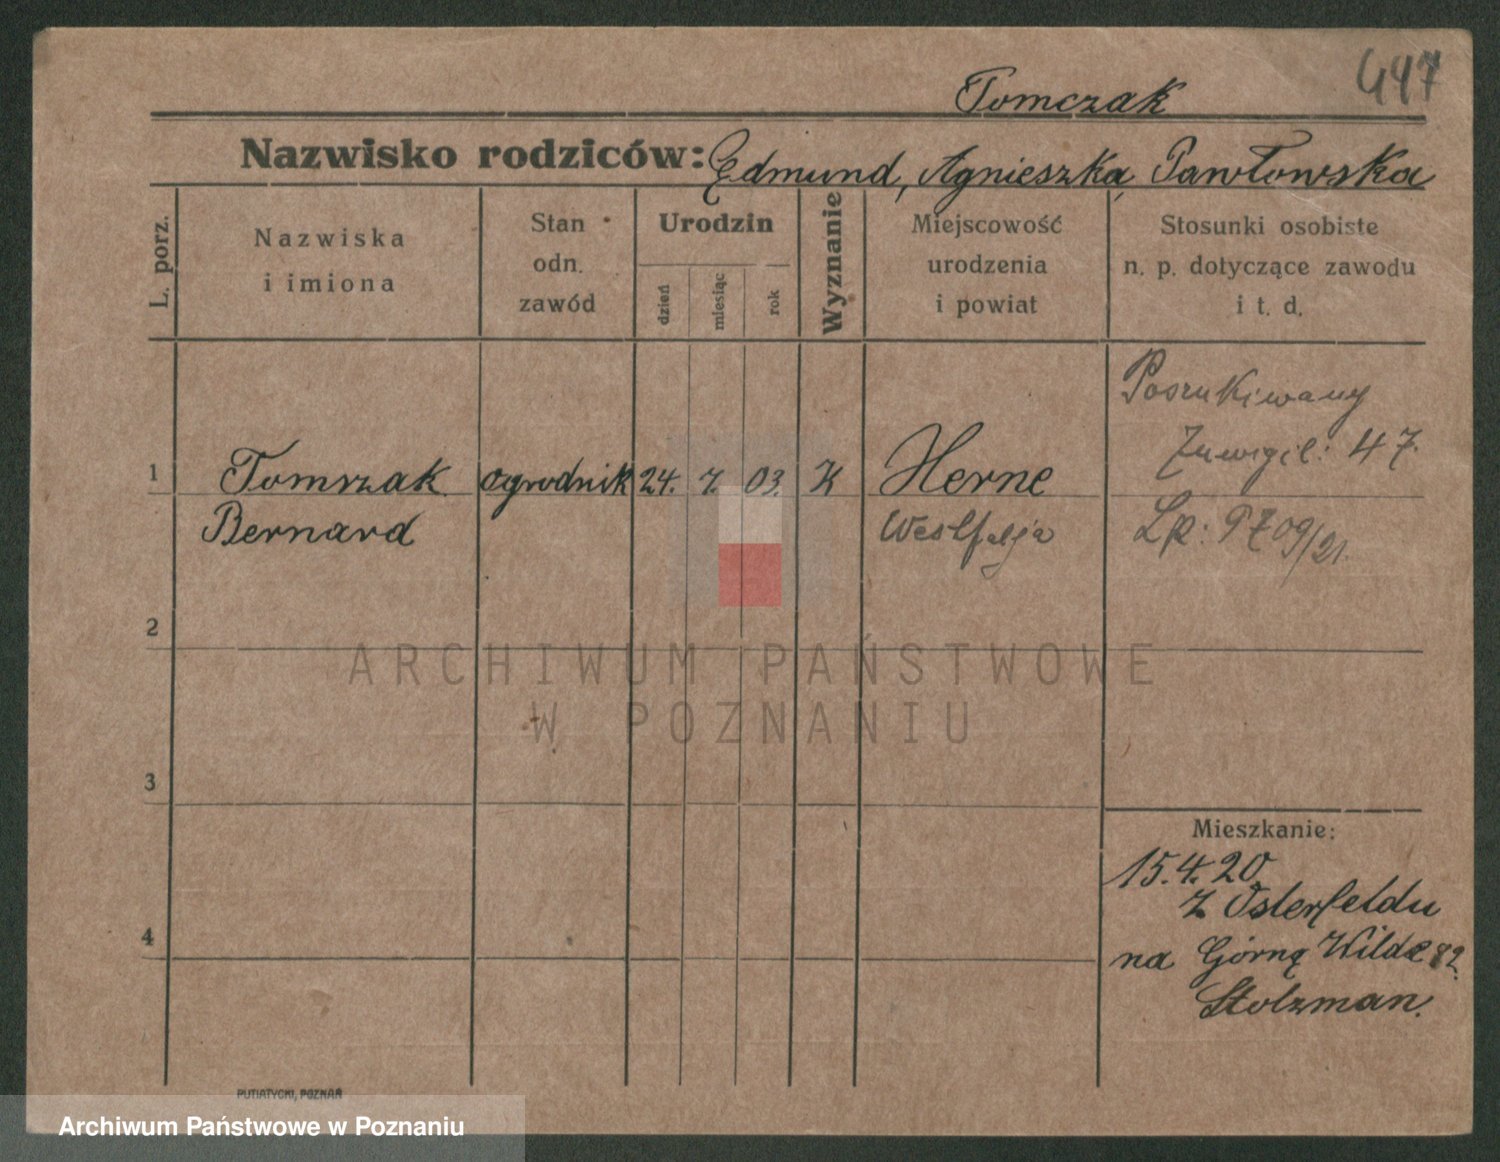 447
Tomczak
Nazwisko rodziców: Edmund, Agnieszka, Pawłowska
L. porz.
Nazwiska
i imiona
Stan
odn.
zawód
Urodzin
dzień
miesiąc
rok
Wyznanie
Miejscowość
urodzenia
i powiat
Stosunki osobiste
n. p. dotyczące zawodu
i t. d.
Poszukiwany
47.
1 Tomszak ogrodnik 24. 7. 03. K Herne
Bernard Westfalja
Lp: 9709/21.
2
3
4
Mieszkanie:
15.4.20
z Osterfeldu
na Górną Wildę 82.
Stolzman.
ARCHIWUM PAŃSTWOWE
W POZNANIU
PUTIATYCKI, POZNAŃ
Archiwum Państwowe w Poznaniu